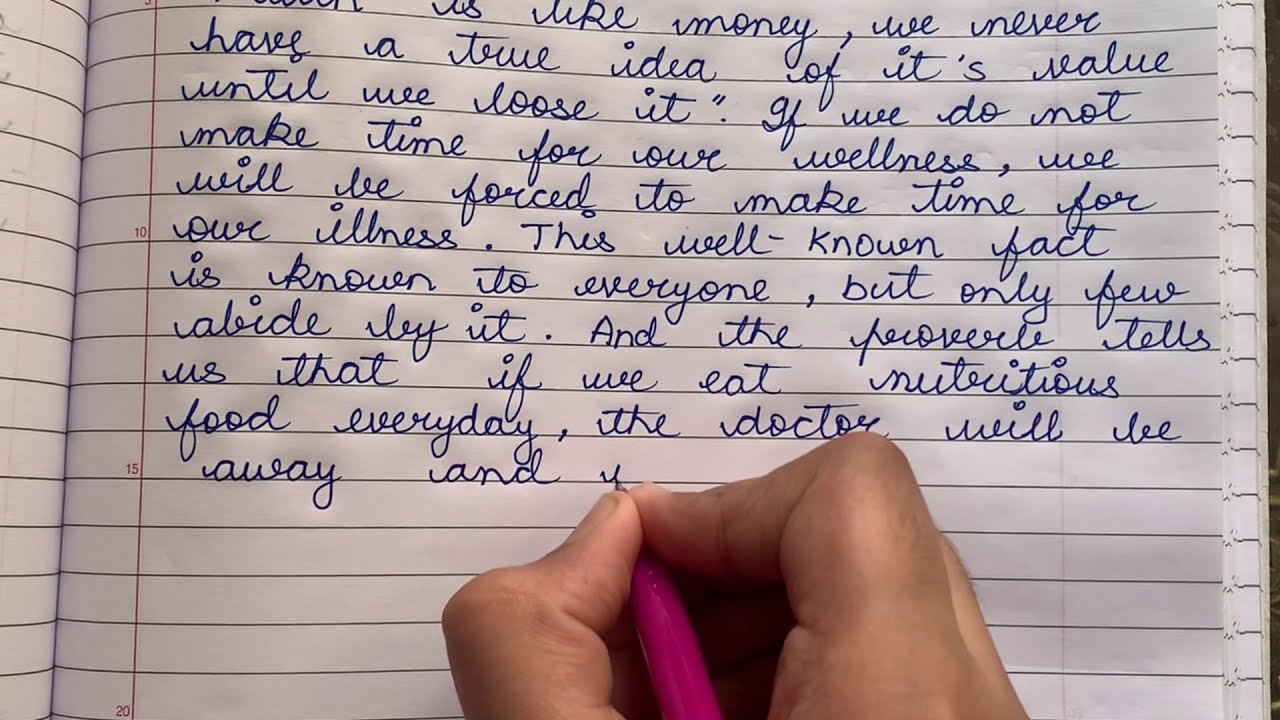 is like money, we never
have a true idea of it's value
until we loose it". If we do not
make time for our wellness, we
will be forced to make time for
10 our illness. This well-known fact
is known to everyone, but only few
abide by it. And the proverb tells
us that if we eat nutritious
food everyday, the doctor will be
15 away and
20